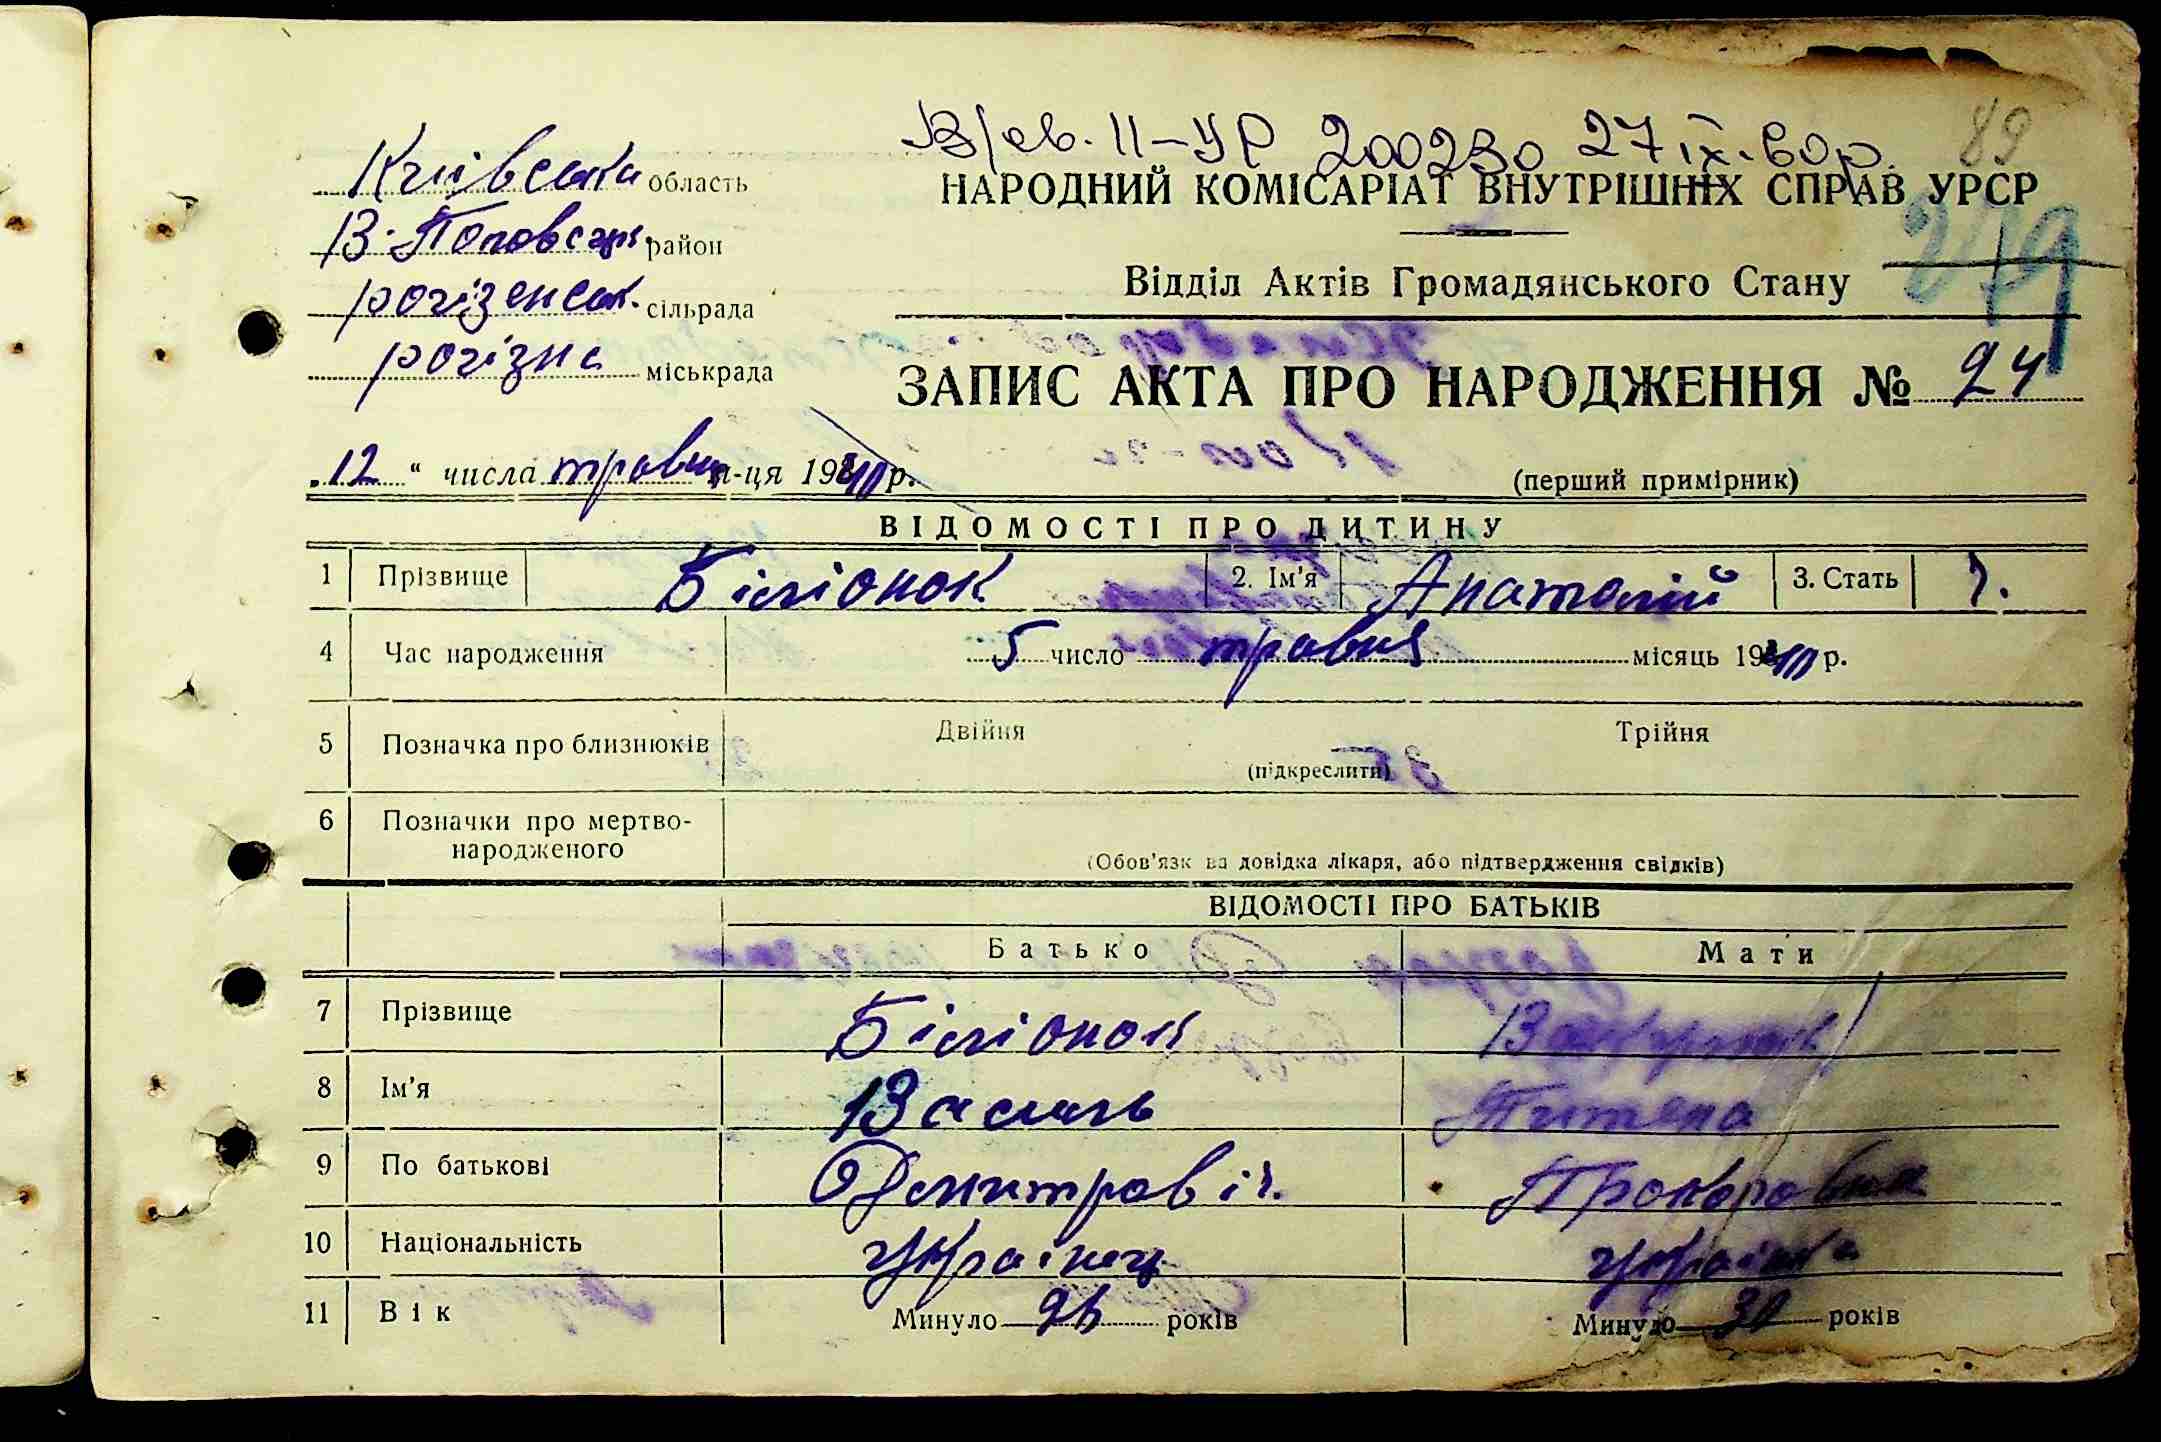 В/св. II-УР 200230 27 IX. 60р. 89
Київська область
НАРОДНИЙ КОМІСАРІАТ ВНУТРІШНІХ СПРАВ УРСР
В-Половецьк. район
279
Відділ Актів Громадянського Стану
рогізенськ. сільрада
рогізна міськрада
ЗАПИС АКТА ПРО НАРОДЖЕННЯ № 24
„12“ числа травня м-ця 1940 р.
(перший примірник)
ВІДОМОСТІ ПРО ДИТИНУ
1 Прізвище Біліонок 2. Ім'я Анатолій 3. Стать ч.
4 Час народження 5 число травня місяць 1940 р.
5 Позначка про близнюків Двійня Трійня
(підкреслити)
6 Позначки про мертво-
народженого
(Обов'язкова довідка лікаря, або підтвердження свідків)
ВІДОМОСТІ ПРО БАТЬКІВ
Батько Мати
7 Прізвище Біліонок
8 Ім'я Василь
9 По батькові Дмитровіч. Прокоровна
10 Національність Українець Українка
11 Вік Минуло 26 років Минуло 30 років